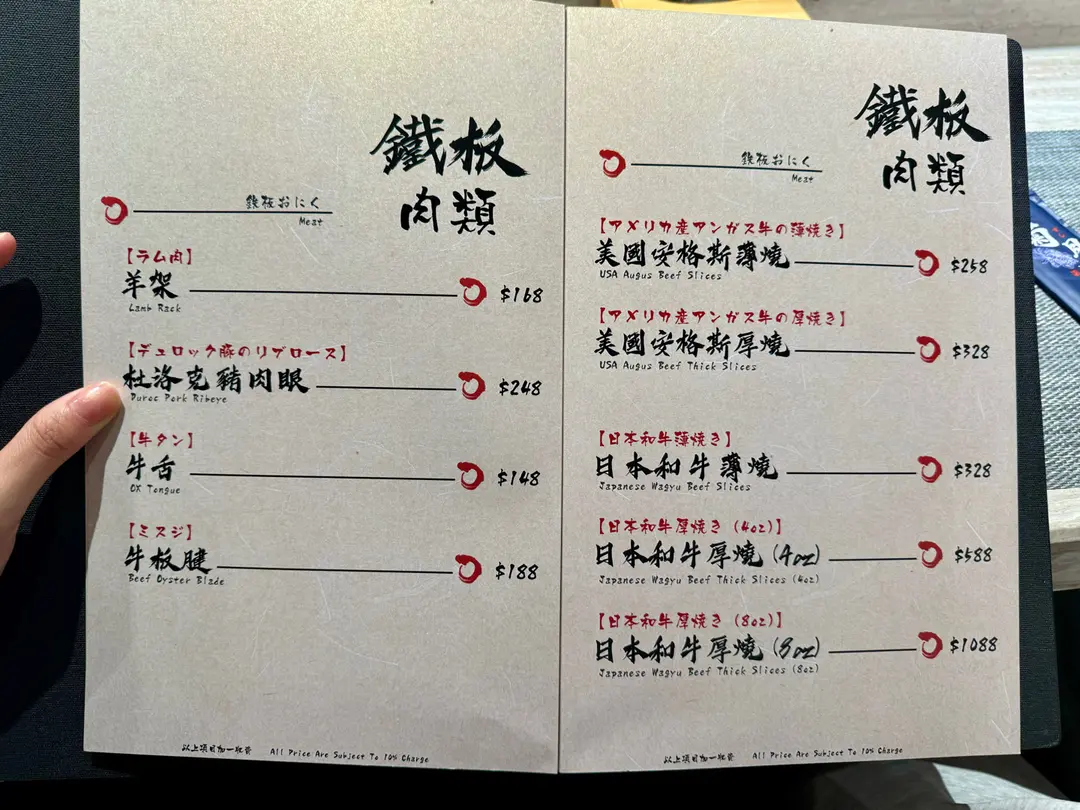 鐵板
肉類
鉄板おにく
Meat
【ラム肉】
羊架 $168
Lamb Rack
【デュロック豚のリブロース】
杜洛克豬肉眼 $248
Duroc Pork Ribeye
【牛タン】
牛舌 $148
OX Tongue
【ミスジ】
牛板腱 $188
Beef Oyster Blade
以上項目加一收費 All Price Are Subject To 10% Charge
鐵板
肉類
鉄板おにく
Meat
【アメリカ産アンガス牛の薄焼き】
美國安格斯薄燒 $258
USA Augus Beef Slices
【アメリカ産アンガス牛の厚焼き】
美國安格斯厚燒 $328
USA Augus Beef Thick Slices
【日本和牛薄焼き】
日本和牛薄燒 $328
Japanese Wagyu Beef Slices
【日本和牛厚焼き (4oz)】
日本和牛厚燒 (4oz) $588
Japanese Wagyu Beef Thick Slices (4oz)
【日本和牛厚焼き (8oz)】
日本和牛厚燒 (8oz) $1088
Japanese Wagyu Beef Thick Slices (8oz)
以上項目加一收費 All Price Are Subject To 10% Charge